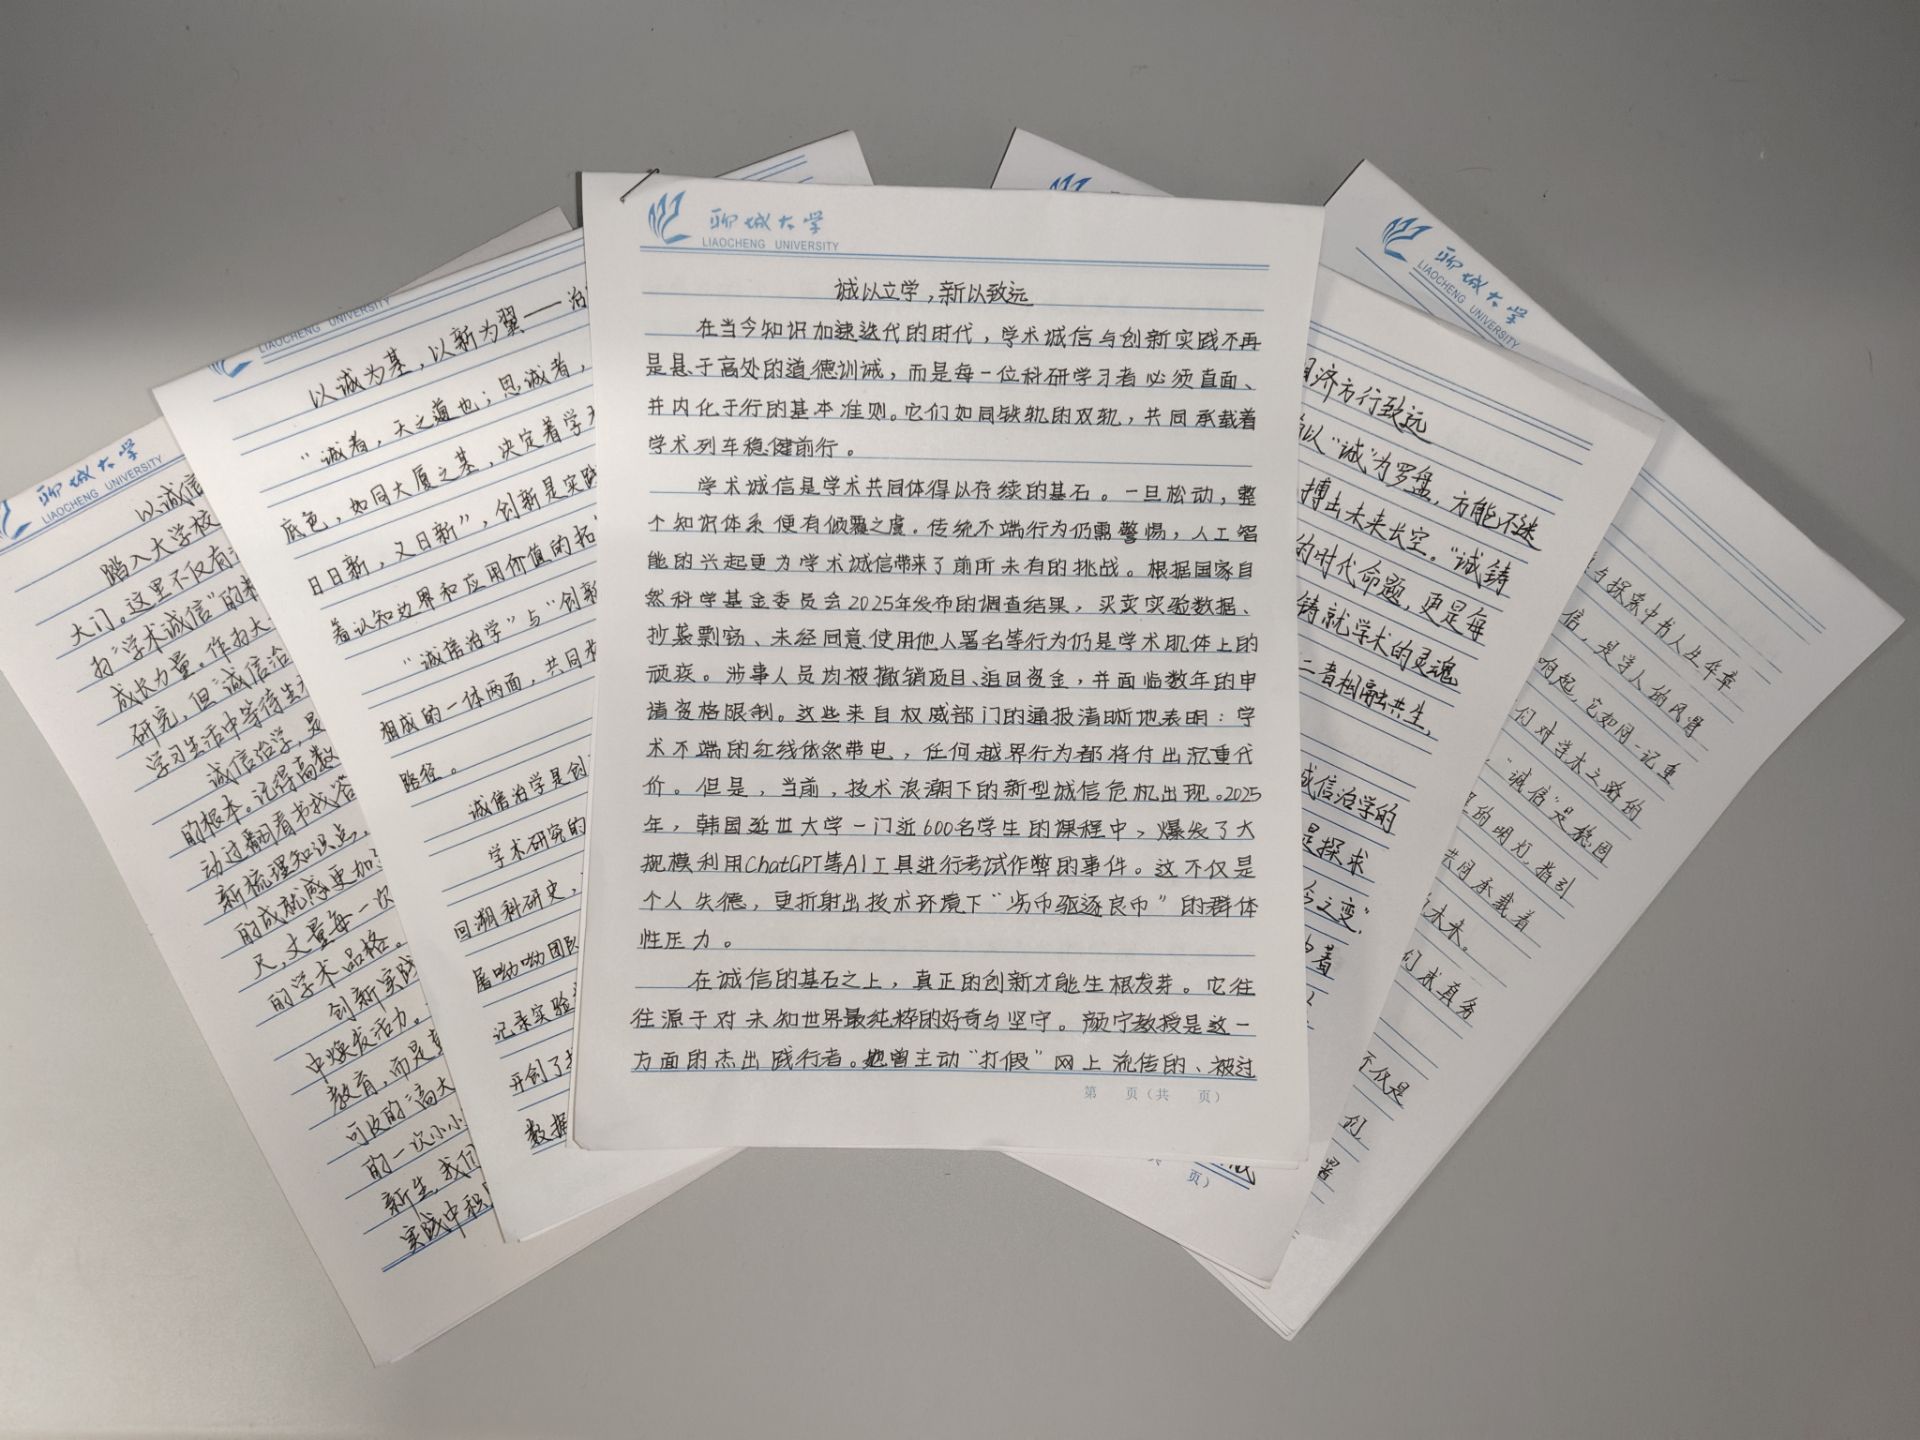 聊城大学
LIAOCHENG UNIVERSITY
诚以立学，新以致远
在当今知识加速迭代的时代，学术诚信与创新实践不再
是悬于高处的道德训诫，而是每一位科研学习者必须直面、
并内化于行的基本准则。它们如同铁轨的双轨，共同承载着
学术列车稳健前行。
学术诚信是学术共同体得以存续的基石。一旦松动，整
个知识体系便有倾覆之虞。传统不端行为仍需警惕，人工智
能的兴起更为学术诚信带来了前所未有的挑战。根据国家自
然科学基金委员会2025年发布的调查结果，买卖实验数据、
抄袭剽窃、未经同意使用他人署名等行为仍是学术肌体上的
顽疾。涉事人员均被撤销项目、追回资金，并面临数年的申
请资格限制。这些来自权威部门的通报清晰地表明：学
术不端的红线依然带电，任何越界行为都将付出沉重代
价。但是，当前，技术浪潮下的新型诚信危机出现。2025
年，韩国延世大学一门近600名学生的课程中，爆发了大
规模利用ChatGPT等AI工具进行考试作弊的事件。这不仅是
个人失德，更折射出技术环境下“劣币驱逐良币”的群体
性压力。
在诚信的基石之上，真正的创新才能生根发芽。它往
往源于对未知世界最纯粹的好奇与坚守。颜宁教授是这一
方面的杰出践行者。她曾主动“打假”网上流传的、被过
第 页（共 页）
LIAOCHENG UNIVERSITY
以诚为基，以新为翼——治
“诚者，天之道也；思诚者，
底色，如同大厦之基，决定着学
日日新，又日新”，创新是实践
着认知边界和应用价值的拓
“诚信治学”与“创新
相成的一体两面，共同
路径。
诚信治学是创
学术研究的
回溯科研史，
屠呦呦团队
记录实验
开创了
数据
聊城大学
LIAOCHENG UNIVERSITY
以诚信
踏入大学校
大门。这里不仅有
为“学术诚信”的
成长力量。作为大
研究，但“诚信治
学习生活中等待生
诚信治学，是
的根本。记得高数
动过翻看书找答
新梳理知识点，
的成就感更加
尺，丈量每一次
的学术品格。
创新实践
中焕发活力。
教育，而是
可及的“高大
的一次小小
新生，我们
实践中积
济方行致远
以“诚”为罗盘，方能不迷
搏出未来长空。“诚铸
的时代命题，更是每
铸就学术的灵魂
二者相融共生，
诚信治学的
是探求
之变”，
着
页）
聊城大学
LIAOCHENG UNIVERSITY
与探索中书人生华章
信，是学人的风骨
响起，它如同一记重
们对学术之路的
“诚信”是稳固
里的明灯，指引
共同承载着
未来。
们求真务
不仅是
们，
署